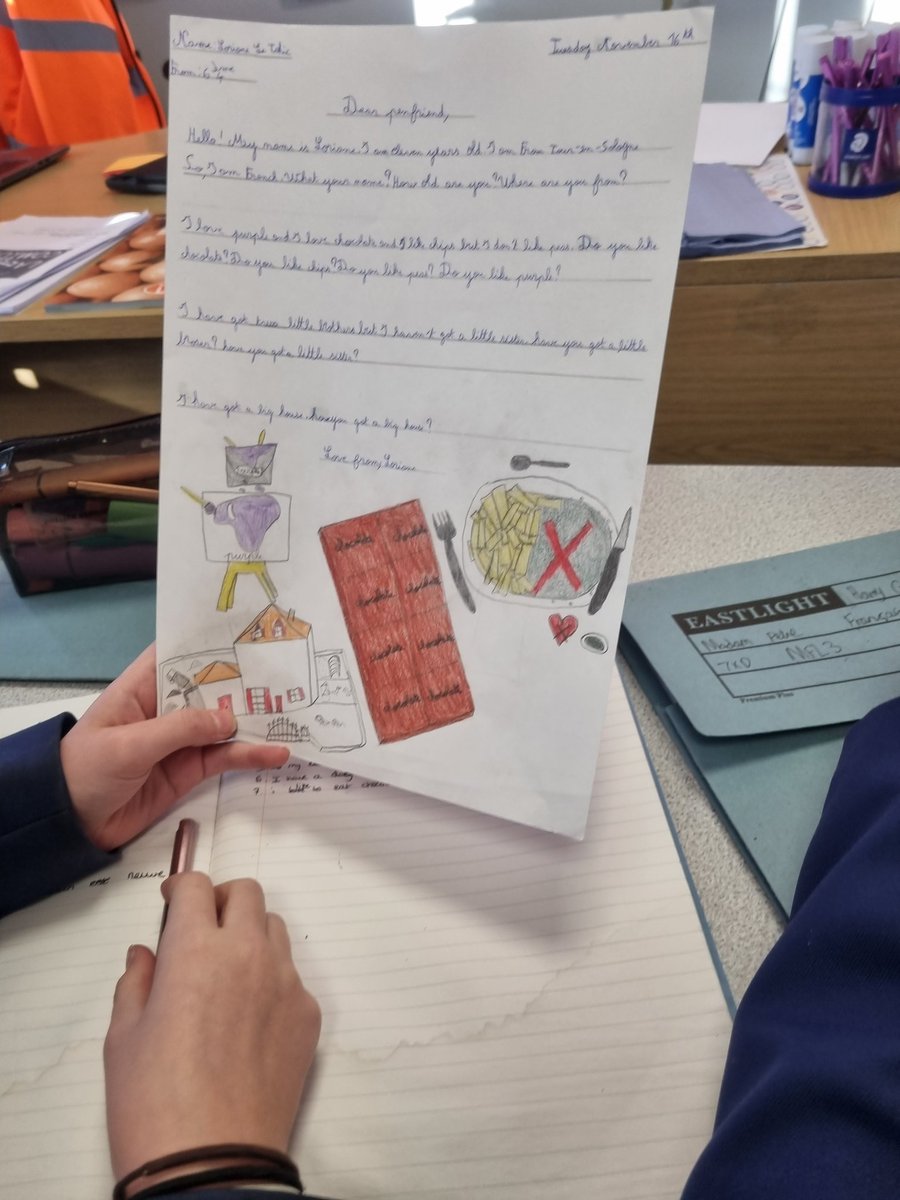 Name Loriane Le
Tuesday November 16th
From: 6ème 4
Dear penfriend,
Hello! Mey name is Loriane. I am eleven years old. I am from -en-Sologne
So, I am French. What your name? How old are you? Where are you from?
I love purple and I love chocolate and I like chips but I don't like peas. Do you like
chocolate? Do you like chips? Do you like peas? Do you like purple?
I have got little brothers but I haven't got a little sister. have you got a little
have you got a little sister?
I have got a big house. have you got a big house?
Love from, Loriane
purple
chocolate chocolate
chocolate chocolate
chocolate chocolate
chocolate chocolate
EASTLIGHT
Madam
Française
7XD MFL3
Premium Plus
6. I have a
7. i to eat
neuve